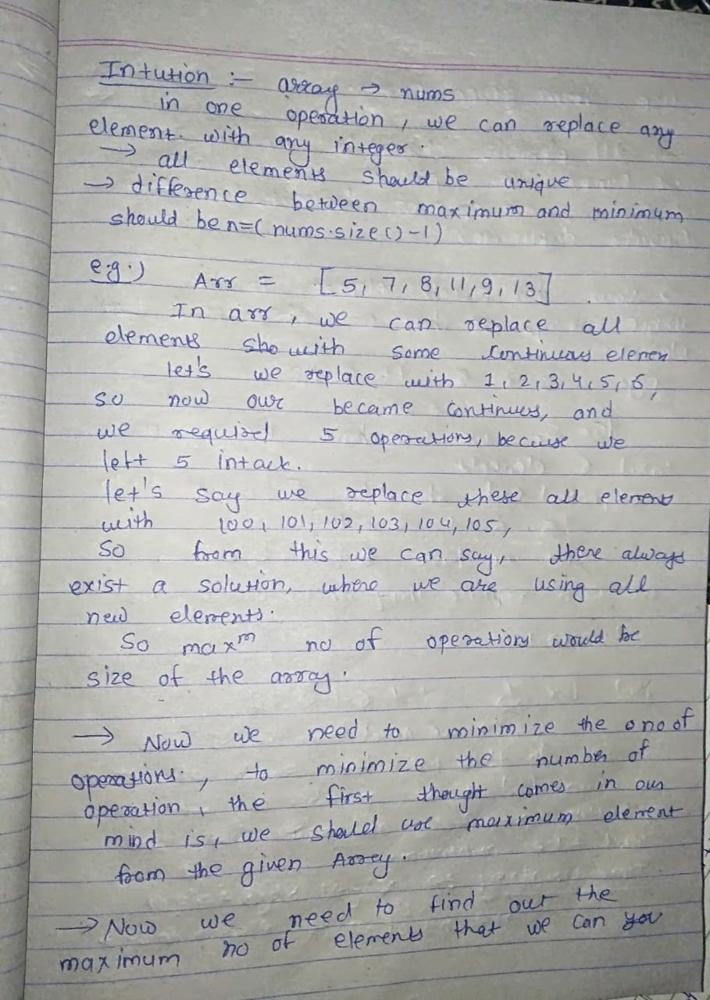 Intution :- array → nums
in one operation, we can replace any
element. with any integer.
→ all elements should be unique
→ difference between maximum and minimum
should be n=(nums.size()-1)
e.g.) Arr = [5, 7, 8, 11, 9, 13]
In arr, we can replace all
elements sho with some continuous elemen
let's we replace with 1, 2, 3, 4, 5, 6,
so now our became continues, and
we required 5 operations, because we
left 5 intack.
let's say we replace these all element
with 100, 101, 102, 103, 104, 105,
So from this we can say, there always
exist a solution, where we are using all
new elements.
So maxᵐ no of operations would be
size of the array.
→ Now we need to minimize the o no of
operations, to minimize the number of
operation, the first thought comes in our
mind is, we should use maximum element
from the given Array.
→ Now we need to find out the
maximum no of elements that we can you